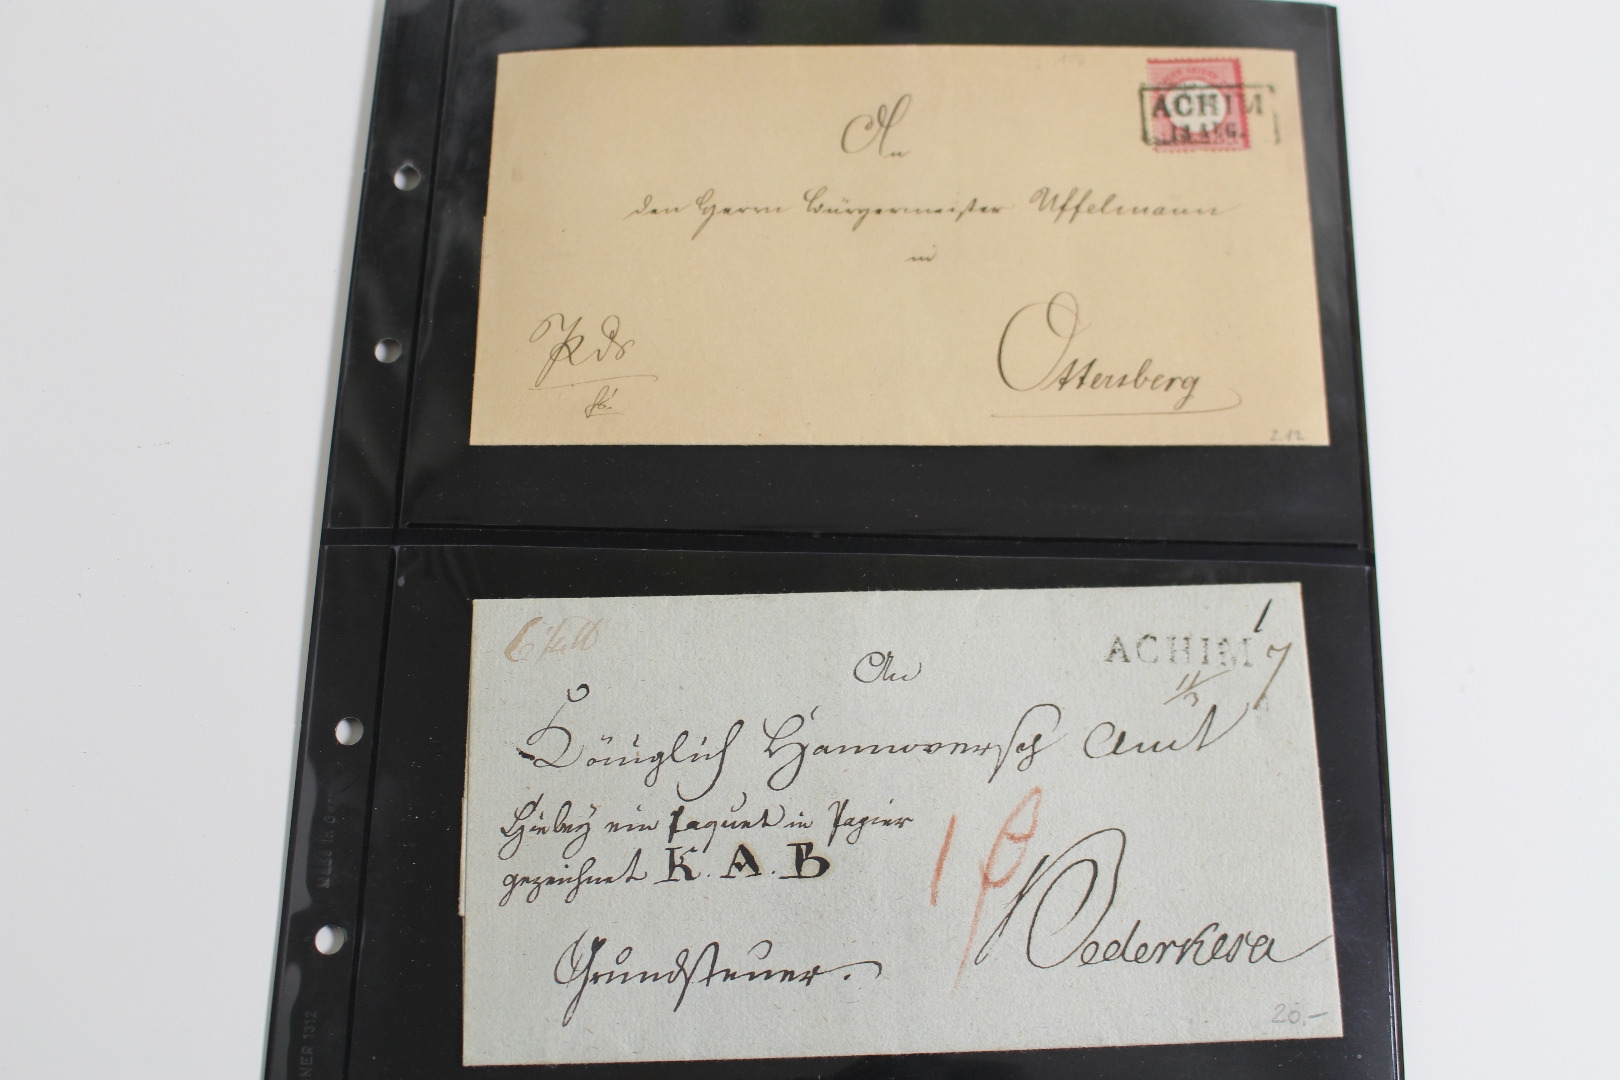 ACHIM
13 AUG.
An
den Herrn Bürgermeister Uffelmann
in
Ottersberg
2.12
ACHIM
11/3
1
7
An
Königlich Hannoversch Amt
Hiebey ein Paquet in Papier
gezeichnet K. A. B
Bederkesa
Grundsteuer.
20.-
MADE IN
NER 1312